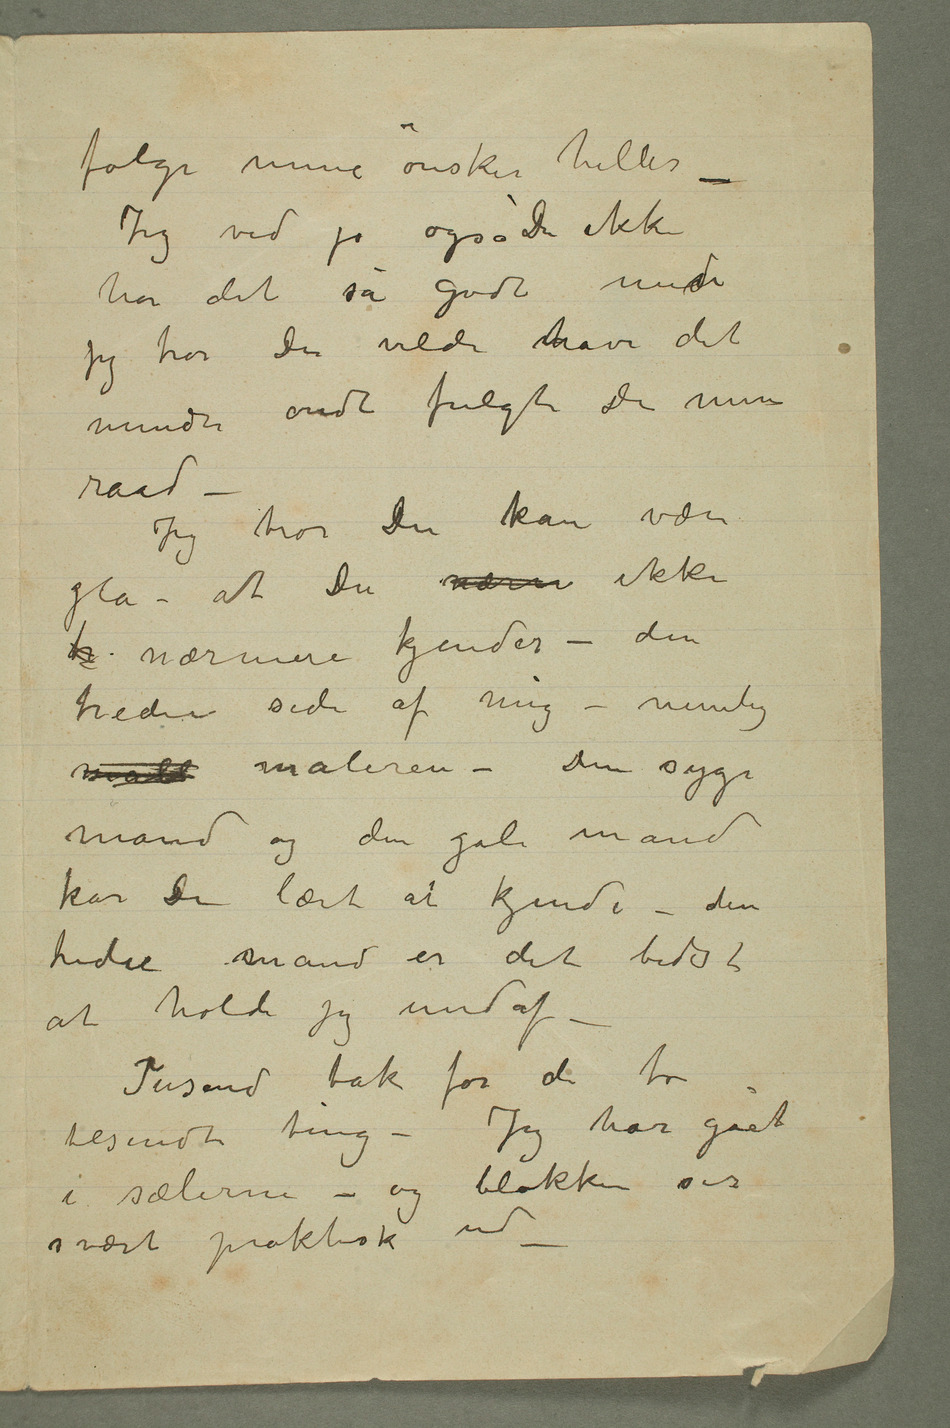 følge mine önsker heller _
Jeg ved jo også Du ikke
har det så godt men
jeg tror Du vilde have det
mindre ondt fulgte Du mine
raad –
Jeg tror Du kan være
gla – at Du ikke
nærmere kjender – den
tredie side af mig – nemlig
maleren – Den syge
mand og den gale mand
har Du lært at kjende – den
tredie mand er det bedst
at holde sig undaf _
Tusend tak for de to
tilsendte ting – Jeg har gået
i sælerne – og blokken ser
svært praktisk ud _